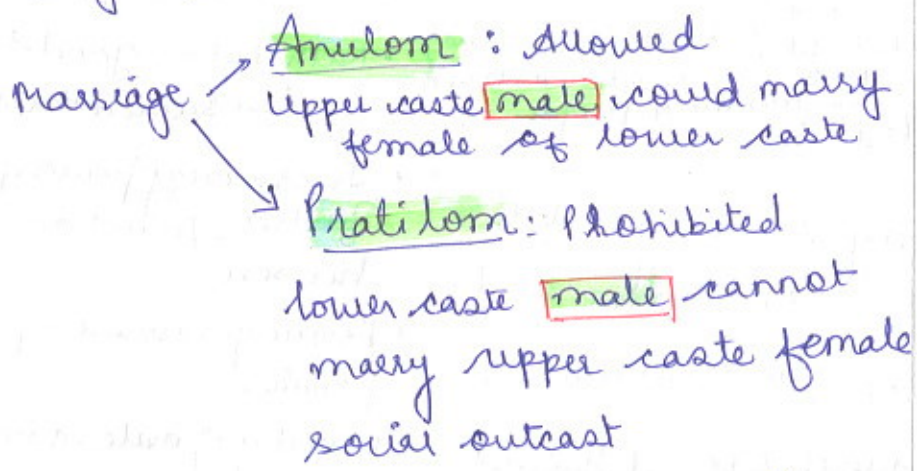 Anulom : Allowed
Marriage
upper caste male could marry
female of lower caste
Pratilom : Prohibited
lower caste male cannot
marry upper caste female
social outcast